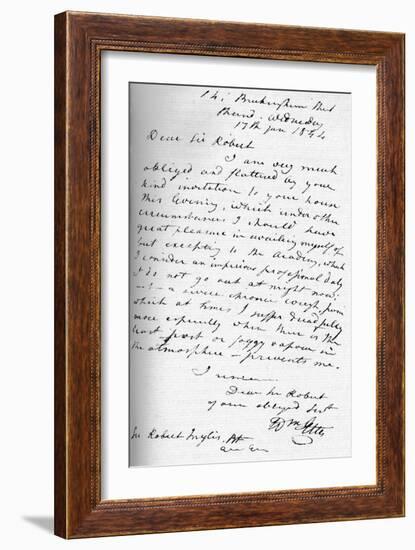 14, Buckingham Street
Strand. Wednesday
17th Jan 1844
Dear Sir Robert
I am very much
obliged and flattered by your
kind invitation to your house
this Evening, which under other
circumstances I should have
great pleasure in availing myself of
but excepting to the Academy, which
I consider an imperious professional duty
I do not go out at night now;
a severe chronic cough from
which at times I suffer dreadfully
more especially when there is the
least frost or foggy vapour in
the atmosphere - prevents me.
I remain
Dear Sir Robert
your obliged Servt
Wm Etty
Sir Robert Inglis. Bt